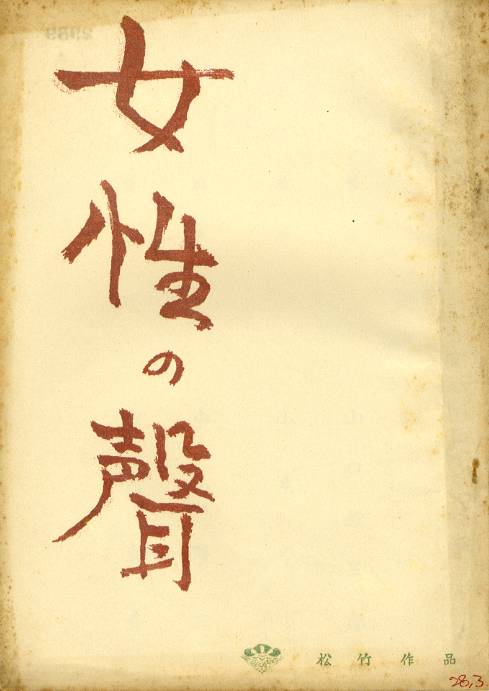 女性の聲
松竹作品
28,3